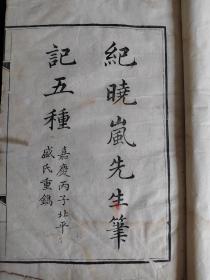 紀曉嵐先生筆
記五種
嘉慶丙子北平
盛氏重鐫